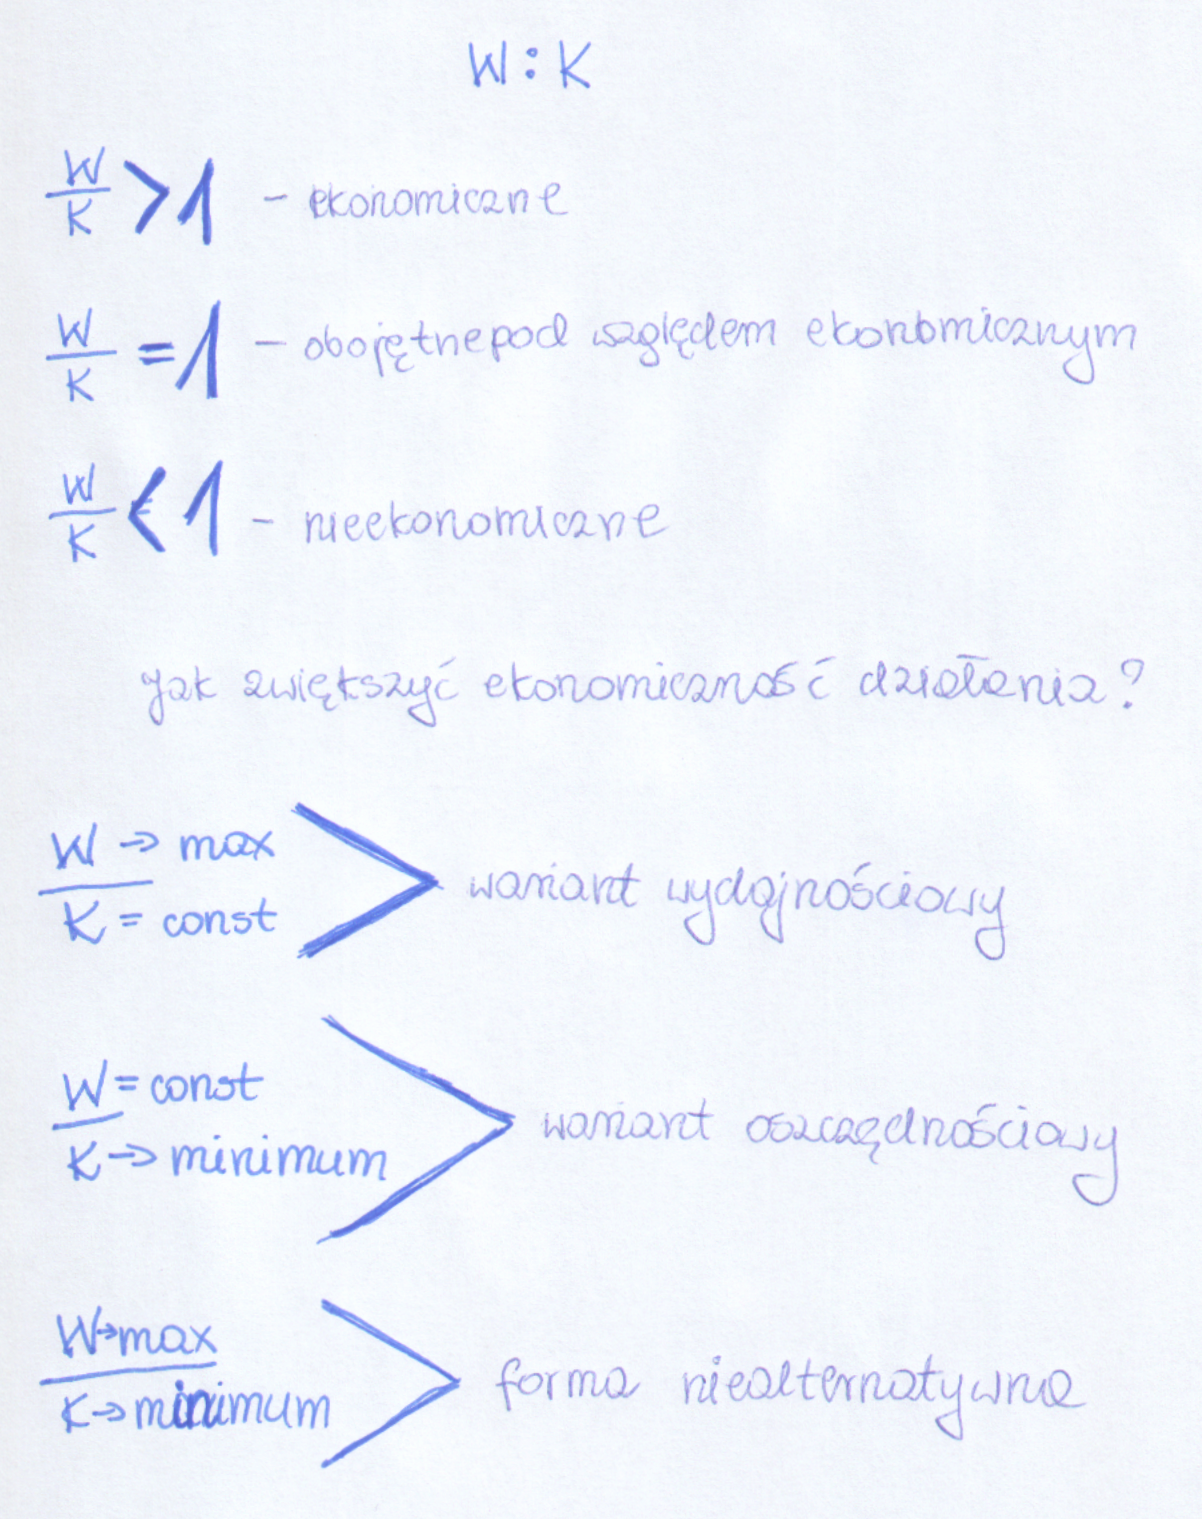 W : K
W/K > 1 - ekonomiczne
W/K = 1 - obojętne pod względem ekonomicznym
W/K < 1 - nieekonomiczne
Jak zwiększyć ekonomiczność działania?
W → max
K = const
wariant wydajnościowy
W = const
K → minimum
wariant oszczędnościowy
W → max
K → minimum
forma niealternatywna